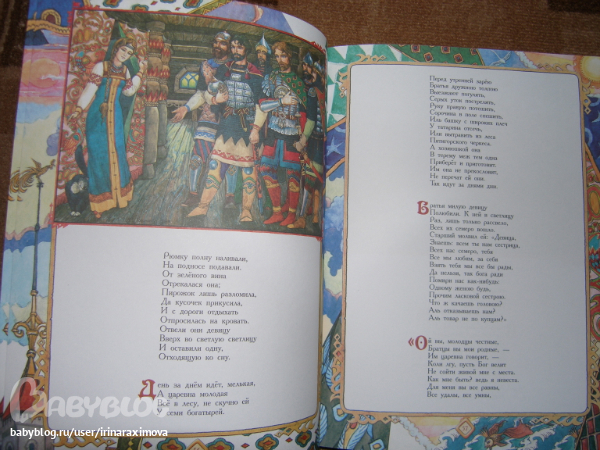 Рюмку полну наливали,
На подносе подавали.
От зелёного вина
Отрекалася она;
Пирожок лишь разломила,
Да кусочек прикусила,
И с дороги отдыхать
Отпросилась на кровать.
Отвели они девицу
Вверх во светлую светлицу
И оставили одну,
Отходящую ко сну.
День за днём идёт, мелькая,
А царевна молодая
Всё в лесу, не скучно ей
У семи богатырей.
Перед утренней зарёю
Братья дружною толпою
Выезжают погулять,
Серых уток пострелять,
Руку правую потешить,
Сорочина в поле спешить,
Иль башку с широких плеч
У татарина отсечь,
Или вытравить из леса
Пятигорского черкеса.
А хозяюшкой она
В терему меж тем одна
Приберёт и приготовит.
Им она не прекословит,
Не перечат ей они.
Так идут за днями дни.
Братья милую девицу
Полюбили. К ней в светлицу
Раз, лишь только рассвело,
Всех их семеро вошло.
Старший молвил ей: «Девица,
Знаешь: всем ты нам сестрица,
Всех нас семеро, тебя
Все мы любим, за себя
Взять тебя мы все бы рады,
Да нельзя, так бога ради
Помири нас как-нибудь:
Одному женою будь,
Прочим ласковой сестрою.
Что ж качаешь головою?
Аль отказываешь нам?
Аль товар не по купцам?»
«Ой вы, молодцы честные,
Братцы вы мои родные, —
Им царевна говорит, —
Коли лгу, пусть Бог велит
Не сойти живой мне с места.
Как мне быть? ведь я невеста.
Для меня вы все равны,
Все удалы, все умны,
BABYBLOG
babyblog.ru/user/irinaraximova